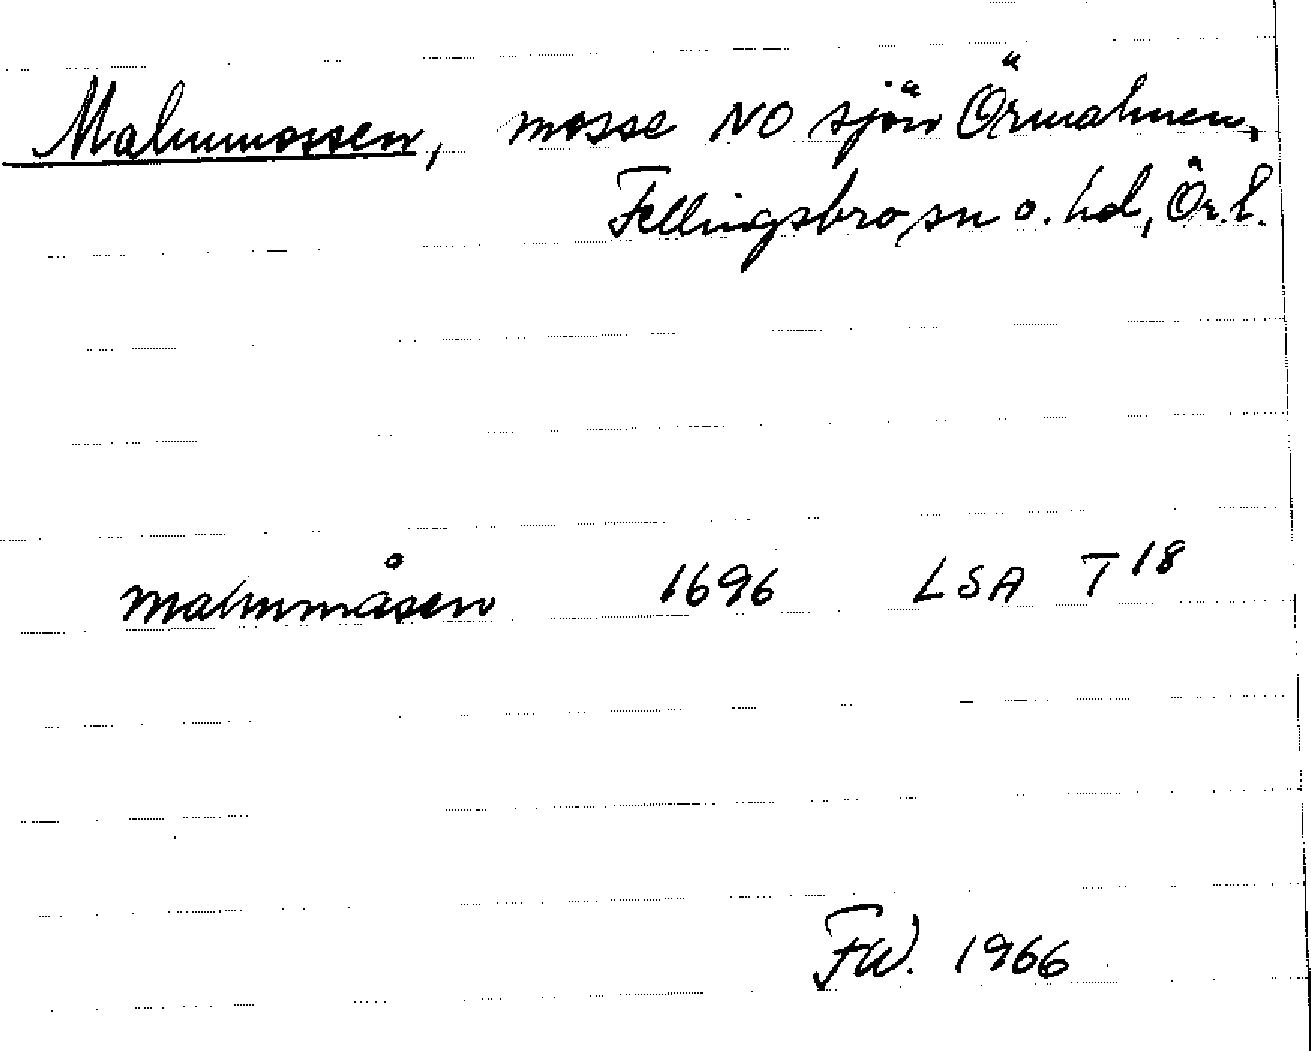 Malmmossen, mosse NO sjön Örmalmen,
Fellingsbro sn o. hd, Ör. l.
malmmåsen 1696 LSA T 18
FW. 1966